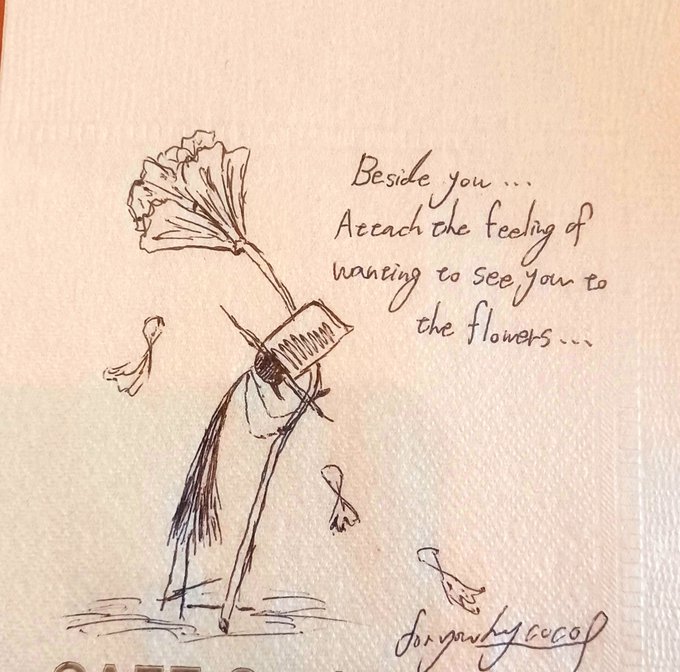 Beside you...
Attach the feeling of
wanting to see you to
the flowers...
for you by cocol
CAFE